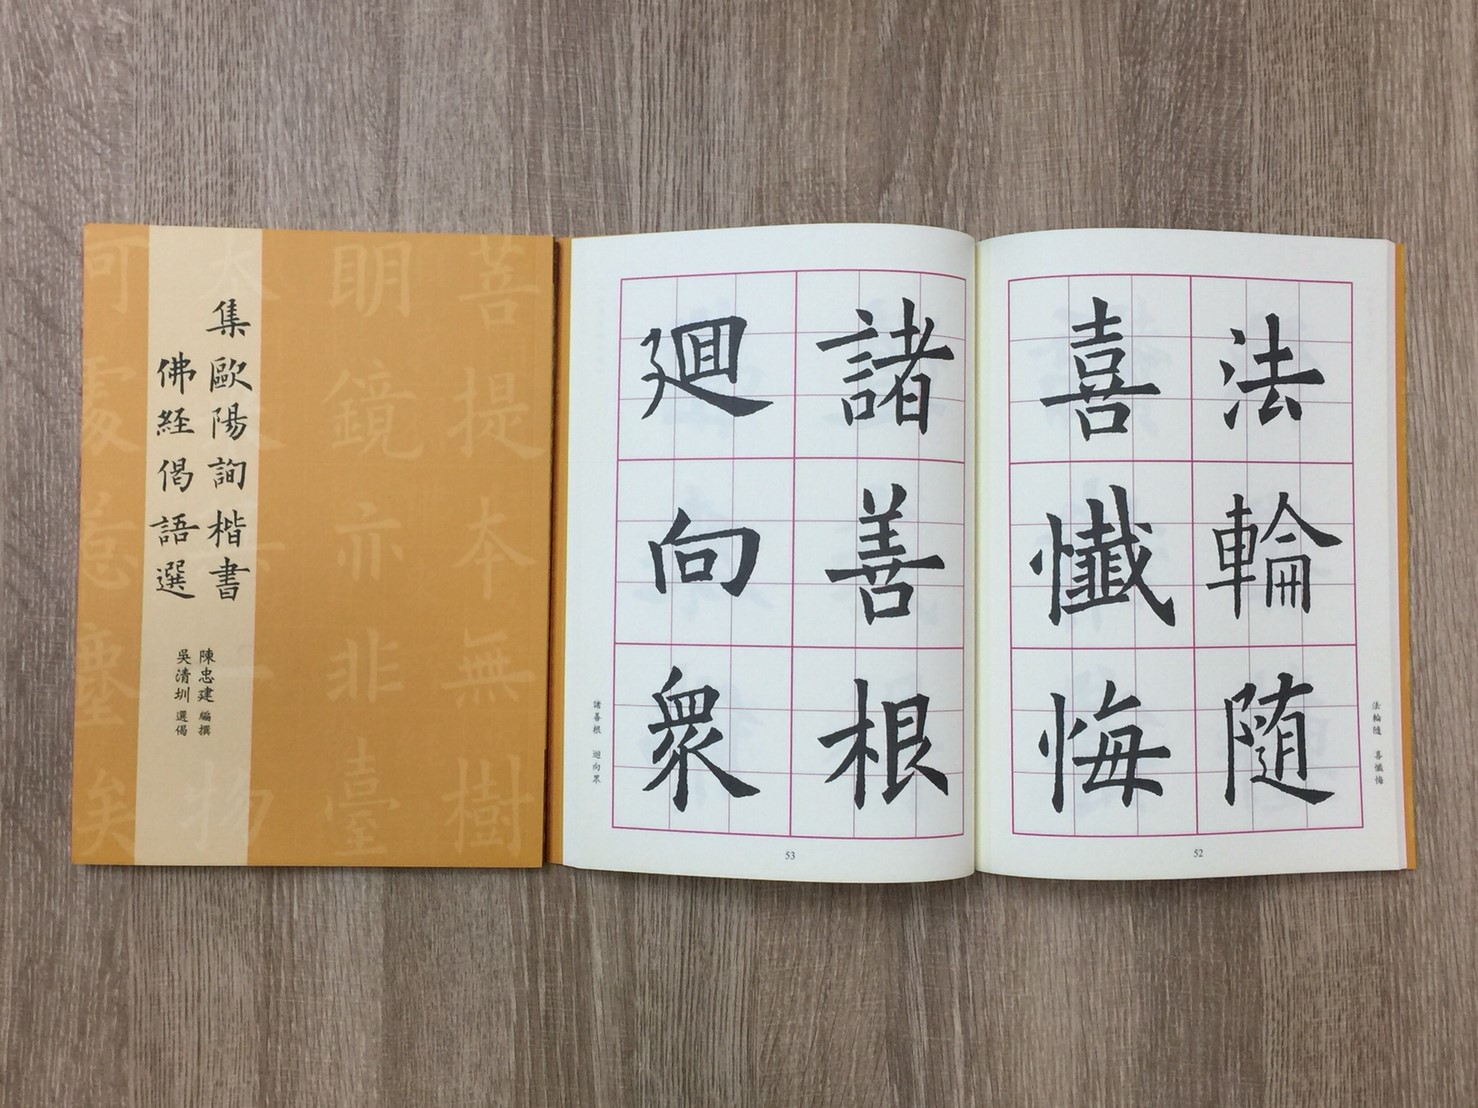 集歐陽詢楷書
佛経偈語選
陳忠建 編撰
吳清圳 選偈
菩提本無樹
明鏡亦非臺
本來無一物
何處惹塵埃
法輪隨
喜懺悔
法輪隨 喜懺悔
52
諸善根
廻向眾
諸善根 廻向眾
53